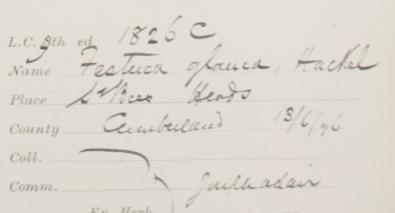 L.C. 9th ed. 1826 C
Name Festuca glauca, Hackel
Place St Bees Heads
County Cumberland 13/6/96
Coll.
Comm.
Ex Herb.